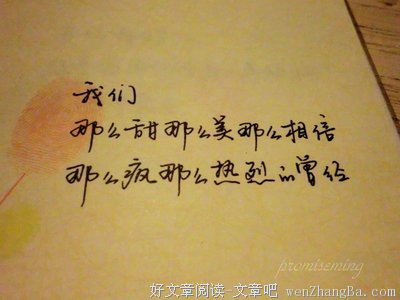 我们
那么甜那么美那么相信
那么疯那么热烈的曾经
promiseming
好文章阅读-文章吧 wenZhangBa.com